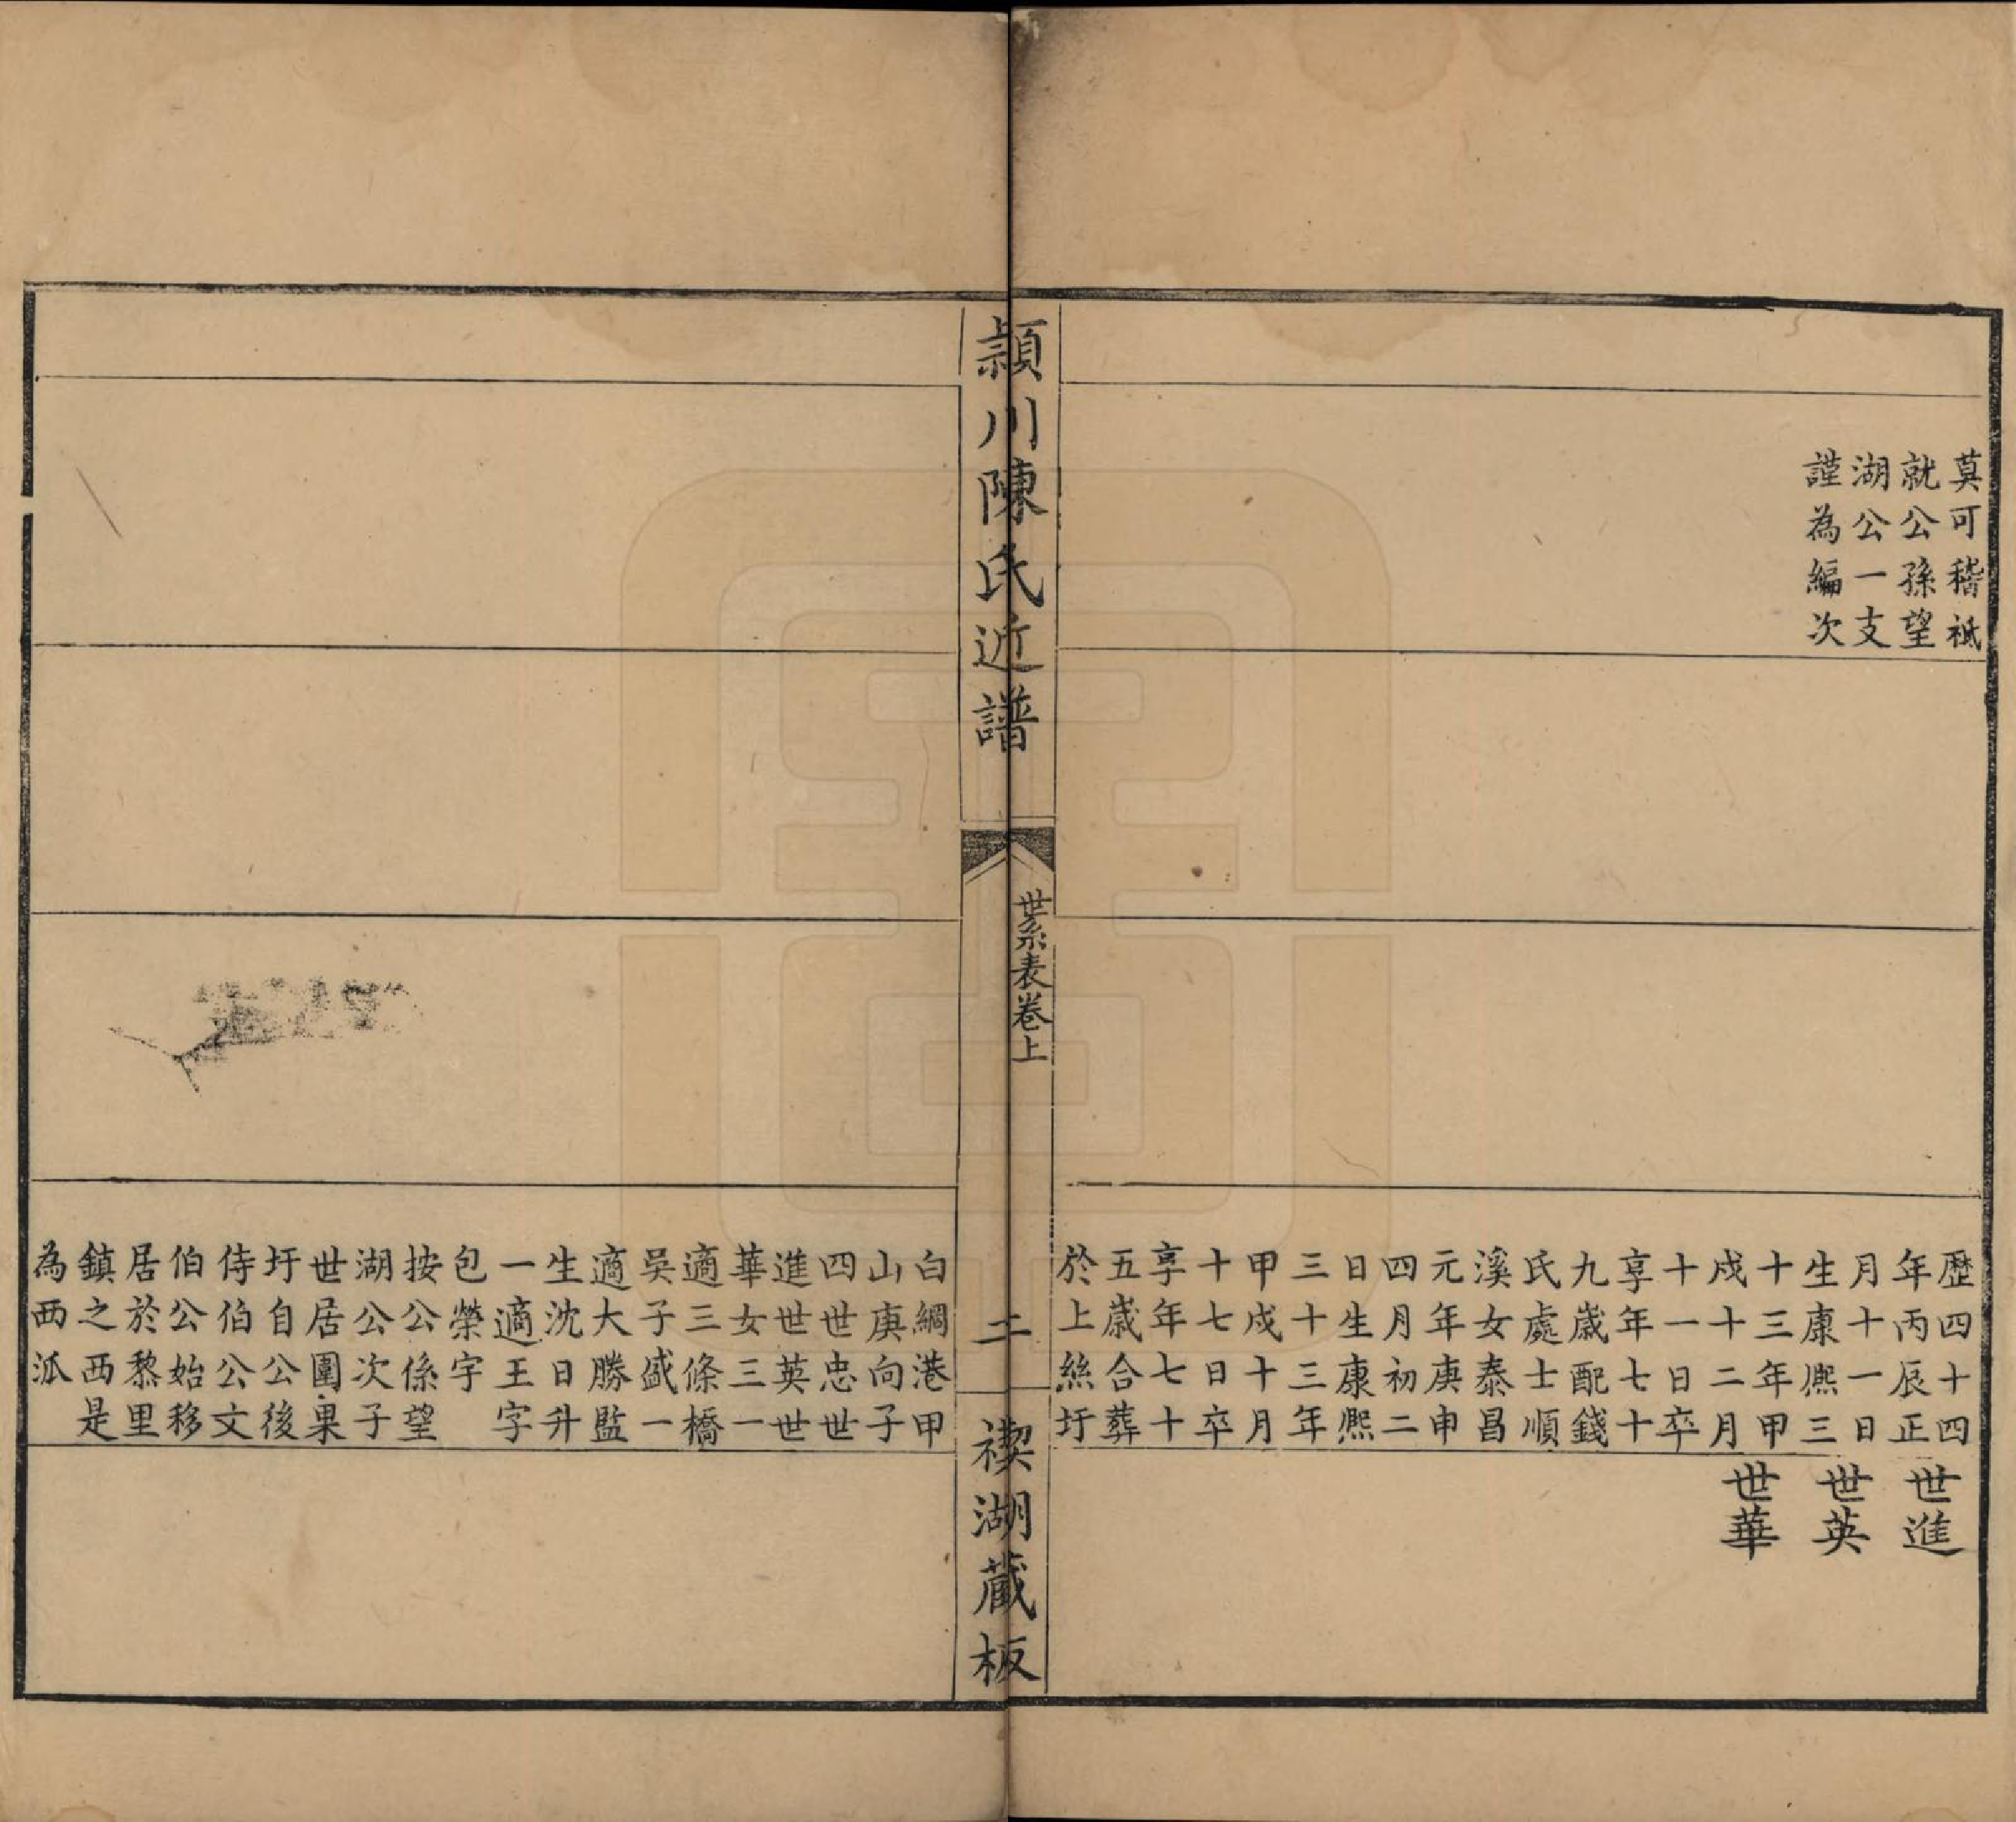 莫可稽祗
就公孫望
湖公一支
謹為編次
歷四十四
年丙辰正
月十一日
生康熙三
十三年甲
戌十二月
十一日卒
享年七十
九歲配錢
氏處士順
溪女泰昌
元年庚申
四月初二
日生康熙
三十三年
甲戌十月
十七日卒
享年七十
五歲合葬
於上絲圩
世進
世英
世華
頴川陳氏近譜
世系表卷上
二
禊湖藏板
白綢港甲
山庚向子
四世忠世
進世英世
華女三一
適三條橋
吳子盛一
適大勝監
生沈日升
一適王字
包榮字
按公係望
湖公次子
世居圍果
圩自公後
侍伯公文
伯公始移
居於黎里
鎮之西是
為西派